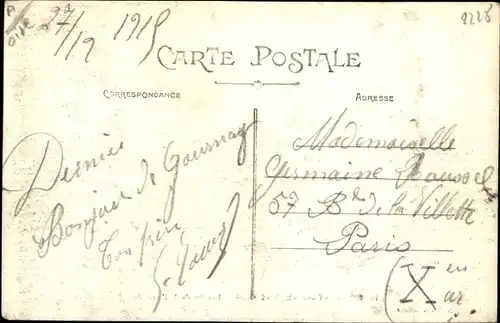 27/12 1915
CARTE POSTALE
CORRESPONDANCE
ADRESSE
Dernier
Bonjour de Gournay
Ton
Mademoiselle
Germaine
57 Bd de la Villette
Paris
(X en
ar